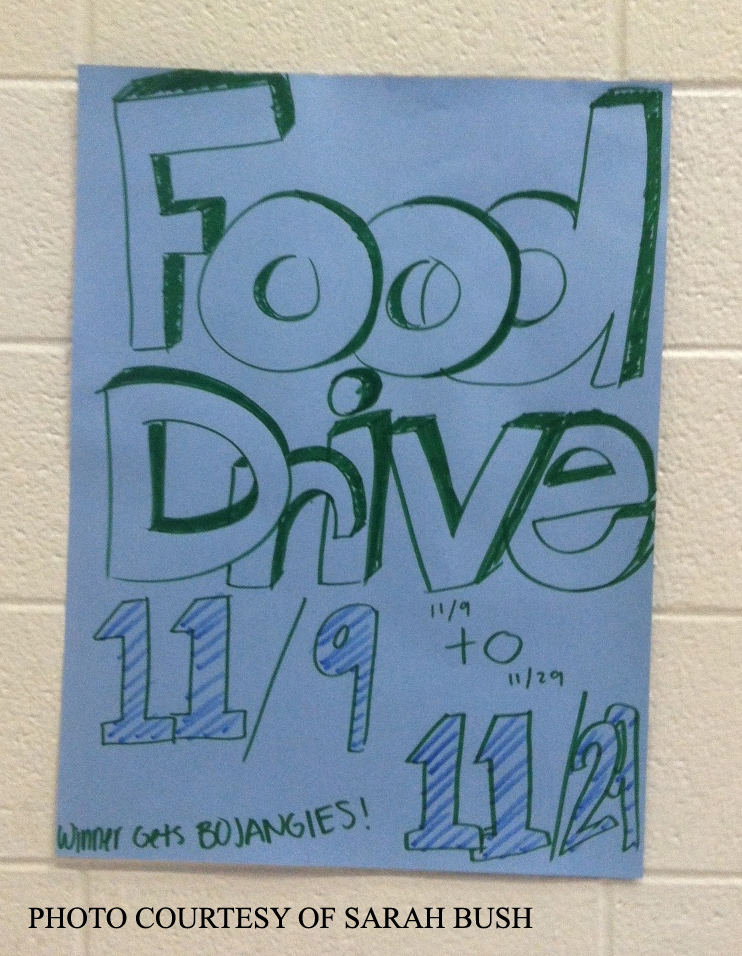 Food
Drive
11/9
11/9
to
11/29
11/29
Winner Gets BOJANGlES!
PHOTO COURTESY OF SARAH BUSH